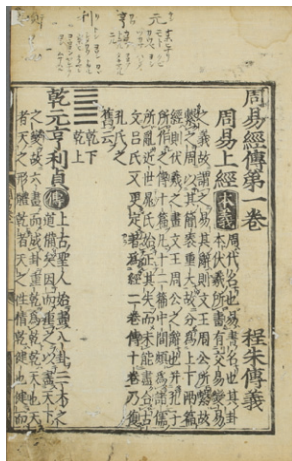 元
亨
利
周易經傳第一卷 程朱傳義
周易上經 本義 周代名也易書名也其卦
本伏羲所畫有交易變易
之義故謂之易其辭則文王周公所繫故
繫之周以其簡袠重大故分爲上下兩篇
經則伏羲之畫文王周公之辭也并孔子
所作之傳十篇凡十二篇中間頗爲諸儒
所亂近世晁氏始正其失而未能盡合古
文呂氏又更定著爲經二卷傳十卷乃復
孔氏之
舊云
乾下
乾上
乾元亨利貞 傳 上古聖人始畫八卦三才之
道備矣因而重之以盡天下
之變故六畫而成卦重乾爲乾乾天也天
者天之形體乾者天之性情乾健也健而